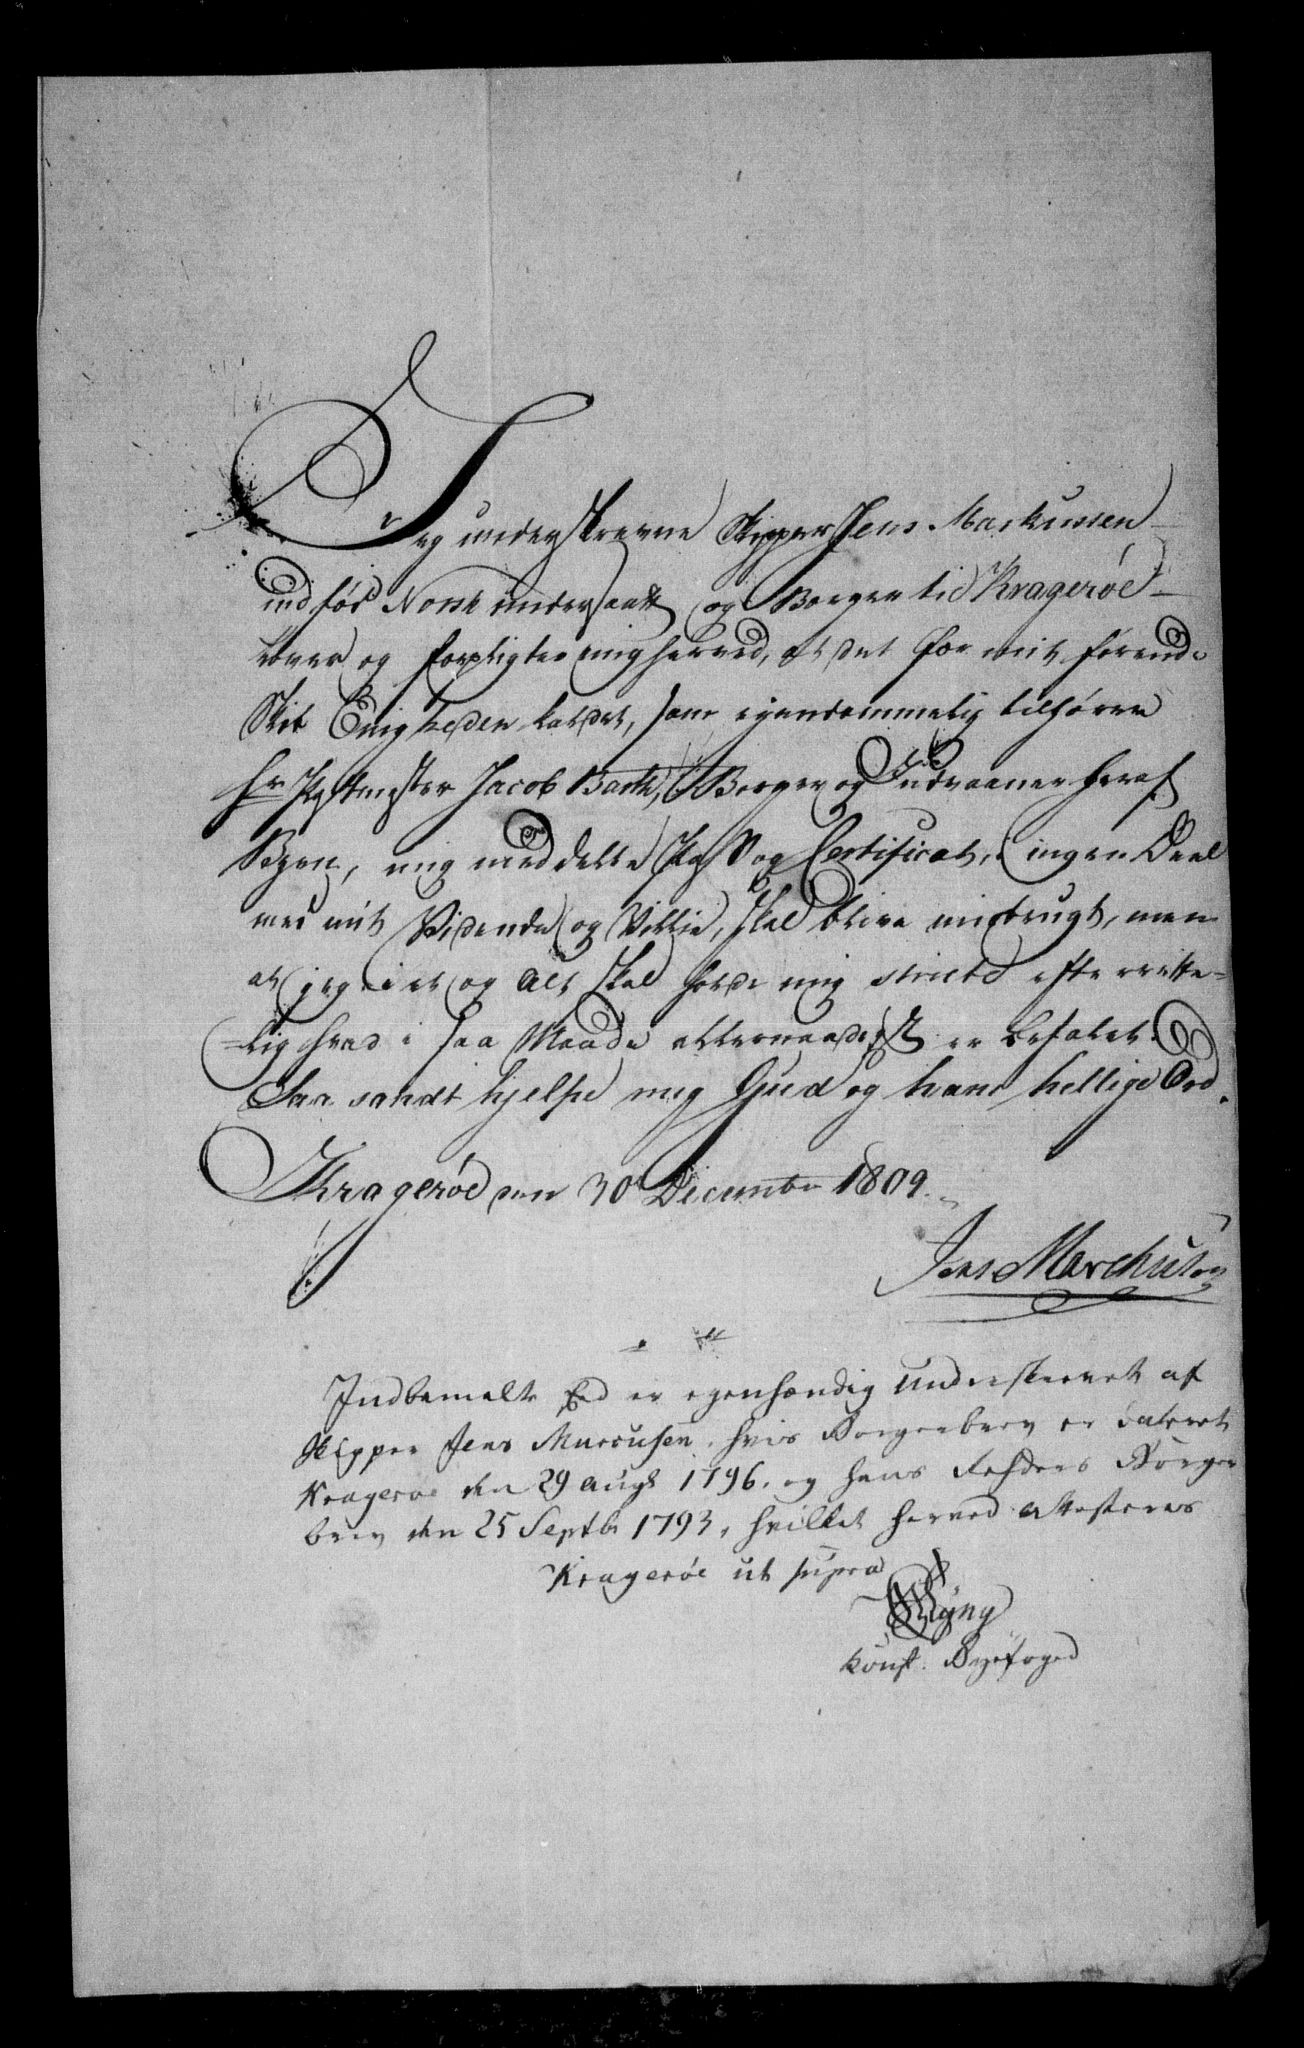 Jeg underskrevne Skipper Jens Markussen
indfød Norsk undersaatt og Borger til Kragerøe
lover og forpligter mig herved, at det for mit førende
Skib Enigheden kaldet, som eyendommelig tilhører
Hr Postmester Jacob Barth, Borger og Indvaaner heraf
Byen, mig meddelte Pas og Certificat, ingen Deel
med mit Vidende og Villie, skal blive misbrugt, men
at jeg i et og alt skal holde mig stricte efterrette-
=lig hvad i saa Maade allernaadigst er befalet.
Saa sandt hjelpe mig Gud og hans hellige Ord.
Kragerøe den 30 December 1809.
Jens Marchusen
Indbemelte Eed er egenhændig underskrevet af
Skipper Jens Marcusen, hvis Borgerbrev er dateret
Kragerøe den 29 augt 1796. og hans Rehders Borger
brev den 25 Septbr 1793, hvilket herved attesteres
Kragerøe ut supra
const. Byefoged